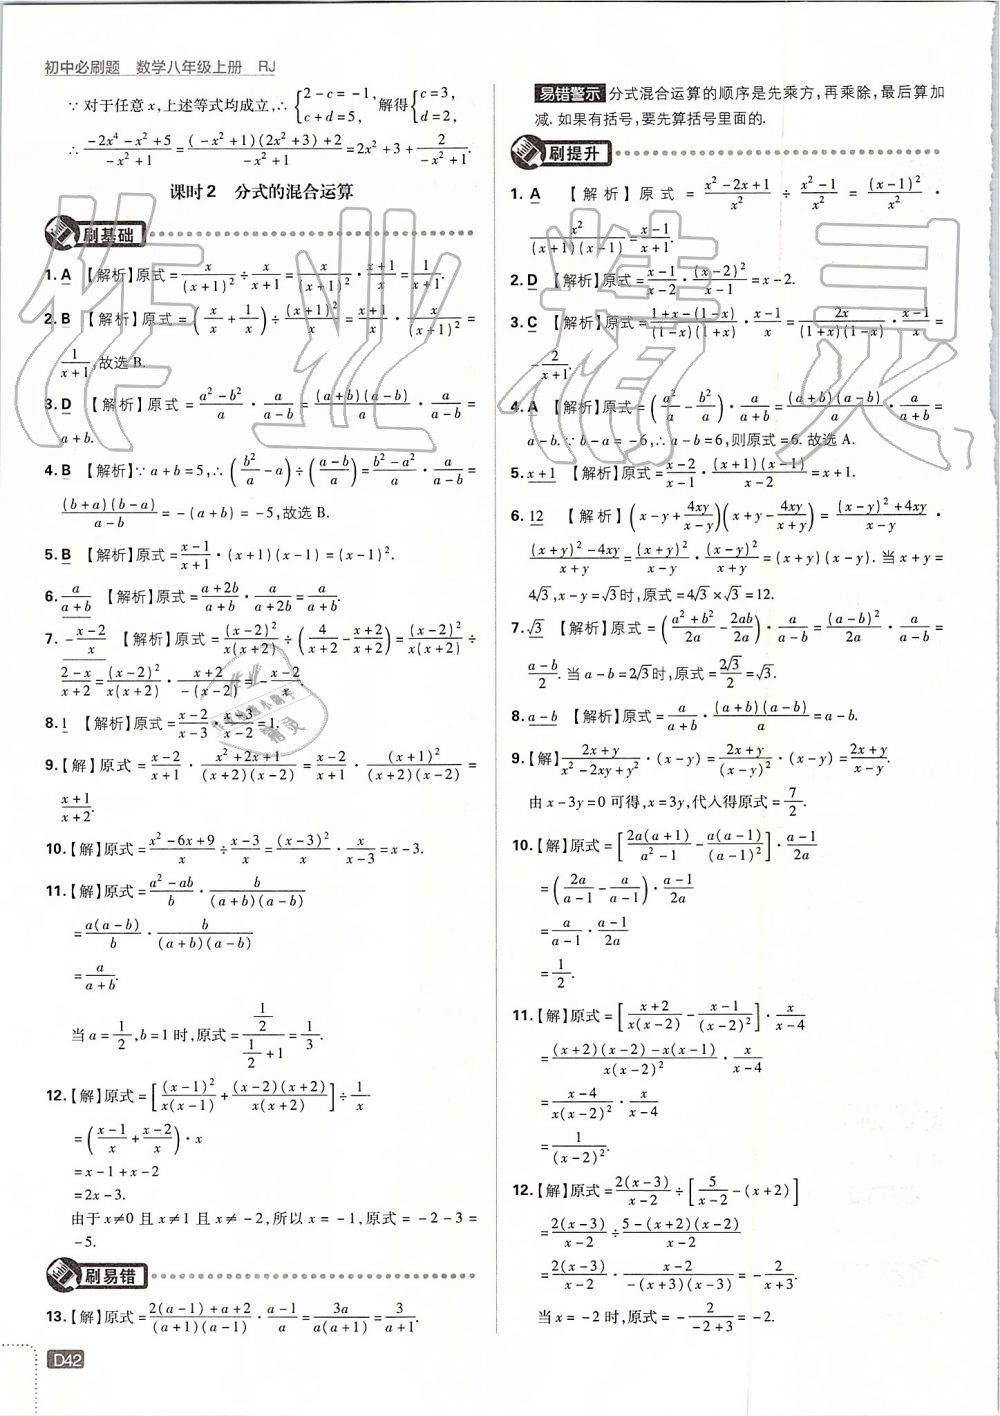 初中必刷题 数学八年级上册 RJ
∵对于任意 x,上述等式均成立,∴{2-c=-1, c+d=5, 解得{c=3, d=2,
∴(-2x⁴-x²+5)/(-x²+1)=((-x²+1)(2x²+3)+2)/(-x²+1)=2x²+3+2/(-x²+1).
课时2 分式的混合运算
刷基础
1. A 【解析】原式=x/(x+1)²÷x/(x+1)=x/(x+1)²·(x+1)/x=1/(x+1).
2. B 【解析】原式=(x/x+1/x)÷(x+1)²/x=(x+1)/x·x/(x+1)²=
1/(x+1),故选 B.
3. D 【解析】原式=(a²-b²)/a·a/(a-b)=((a+b)(a-b))/a·a/(a-b)=
a+b.
4. B 【解析】∵a+b=5,∴(b²/a-a)÷((a-b)/a)=(b²-a²)/a·a/(a-b)=
((b+a)(b-a))/(a-b)=-(a+b)=-5,故选 B.
5. B 【解析】原式=(x-1)/(x+1)·(x+1)(x-1)=(x-1)².
6. a/(a+b) 【解析】原式=(a+2b)/(a+b)·a/(a+2b)=a/(a+b).
7. -(x-2)/x 【解析】原式=(x-2)²/(x(x+2))÷(4/(x+2)-(x+2)/(x+2))=(x-2)²/(x(x+2))÷
(2-x)/(x+2)=(x-2)²/(x(x+2))·(x+2)/(-(x-2))=-(x-2)/x.
8. 1 【解析】原式=(x-2)/(x-3)·(x-3)/(x-2)=1.
9.【解】原式=(x-2)/(x+1)·(x²+2x+1)/((x+2)(x-2))=(x-2)/(x+1)·(x+1)²/((x+2)(x-2))=
(x+1)/(x+2).
10.【解】原式=(x²-6x+9)/x÷(x-3)/x=(x-3)²/x·x/(x-3)=x-3.
11.【解】原式=(a²-ab)/b·b/((a+b)(a-b))
=(a(a-b))/b·b/((a+b)(a-b))
=a/(a+b).
当 a=1/2,b=1 时,原式=(1/2)/(1/2+1)=1/3.
12.【解】原式=[(x-1)²/(x(x-1))+((x-2)(x+2))/(x(x+2))]÷1/x
=((x-1)/x+(x-2)/x)·x
=x-1+x-2
=2x-3.
由于 x≠0 且 x≠1 且 x≠-2,所以 x=-1,原式=-2-3=
-5.
刷易错
13.【解】原式=(2(a-1)+a+2)/((a+1)(a-1))·(a-1)/a=3a/(a(a+1))=3/(a+1).
D42
易错警示 分式混合运算的顺序是先乘方,再乘除,最后算加
减.如果有括号,要先算括号里面的.
刷提升
1. A 【解析】原式=(x²-2x+1)/x²÷(x²-1)/x²=(x-1)²/x²·
x²/((x+1)(x-1))=(x-1)/(x+1).
2. D 【解析】原式=(x-1)/(x-2)·(x-2)²/(x-1)=x-2.
3. C 【解析】原式=(1+x-(1-x))/((1-x)(1+x))·(x-1)/x=2x/((1+x)(1-x))·(x-1)/x=
-2/(x+1).
4. A 【解析】原式=(a²/a-b²/a)·a/(a+b)=((a+b)(a-b))/a·a/(a+b)=
a-b.∵b-a=-6,∴a-b=6,则原式=6.故选 A.
5. x+1 【解析】原式=(x-2)/(x-1)·((x+1)(x-1))/(x-2)=x+1.
6. 12 【解析】(x-y+4xy/(x-y))(x+y-4xy/(x+y))=((x-y)²+4xy)/(x-y)·
((x+y)²-4xy)/(x+y)=(x+y)²/(x-y)·(x-y)²/(x+y)=(x+y)(x-y).当 x+y=
4√3,x-y=√3时,原式=4√3×√3=12.
7. √3 【解析】原式=((a²+b²)/2a-2ab/2a)·a/(a-b)=(a-b)²/2a·a/(a-b)=
(a-b)/2.当 a-b=2√3时,原式=2√3/2=√3.
8. a-b 【解析】原式=a/(a+b)·((a+b)(a-b))/a=a-b.
9.【解】(2x+y)/(x²-2xy+y²)·(x-y)=(2x+y)/(x-y)²·(x-y)=(2x+y)/(x-y).
由 x-3y=0 可得,x=3y,代入得原式=7/2.
10.【解】原式=[2a(a+1)/(a²-1)-a(a-1)/(a-1)²]·(a-1)/2a
=(2a/(a-1)-a/(a-1))·(a-1)/2a
=a/(a-1)·(a-1)/2a
=1/2.
11.【解】原式=[(x+2)/(x(x-2))-(x-1)/(x-2)²]·x/(x-4)
=((x+2)(x-2)-x(x-1))/(x(x-2)²)·x/(x-4)
=(x-4)/(x(x-2)²)·x/(x-4)
=1/(x-2)².
12.【解】原式=2(x-3)/(x-2)÷[5/(x-2)-(x+2)]
=2(x-3)/(x-2)÷(5-(x+2)(x-2))/(x-2)
=2(x-3)/(x-2)·(x-2)/(-(x+3)(x-3))=-2/(x+3).
当 x=-2时,原式=-2/(-2+3)=-2.
作业精灵